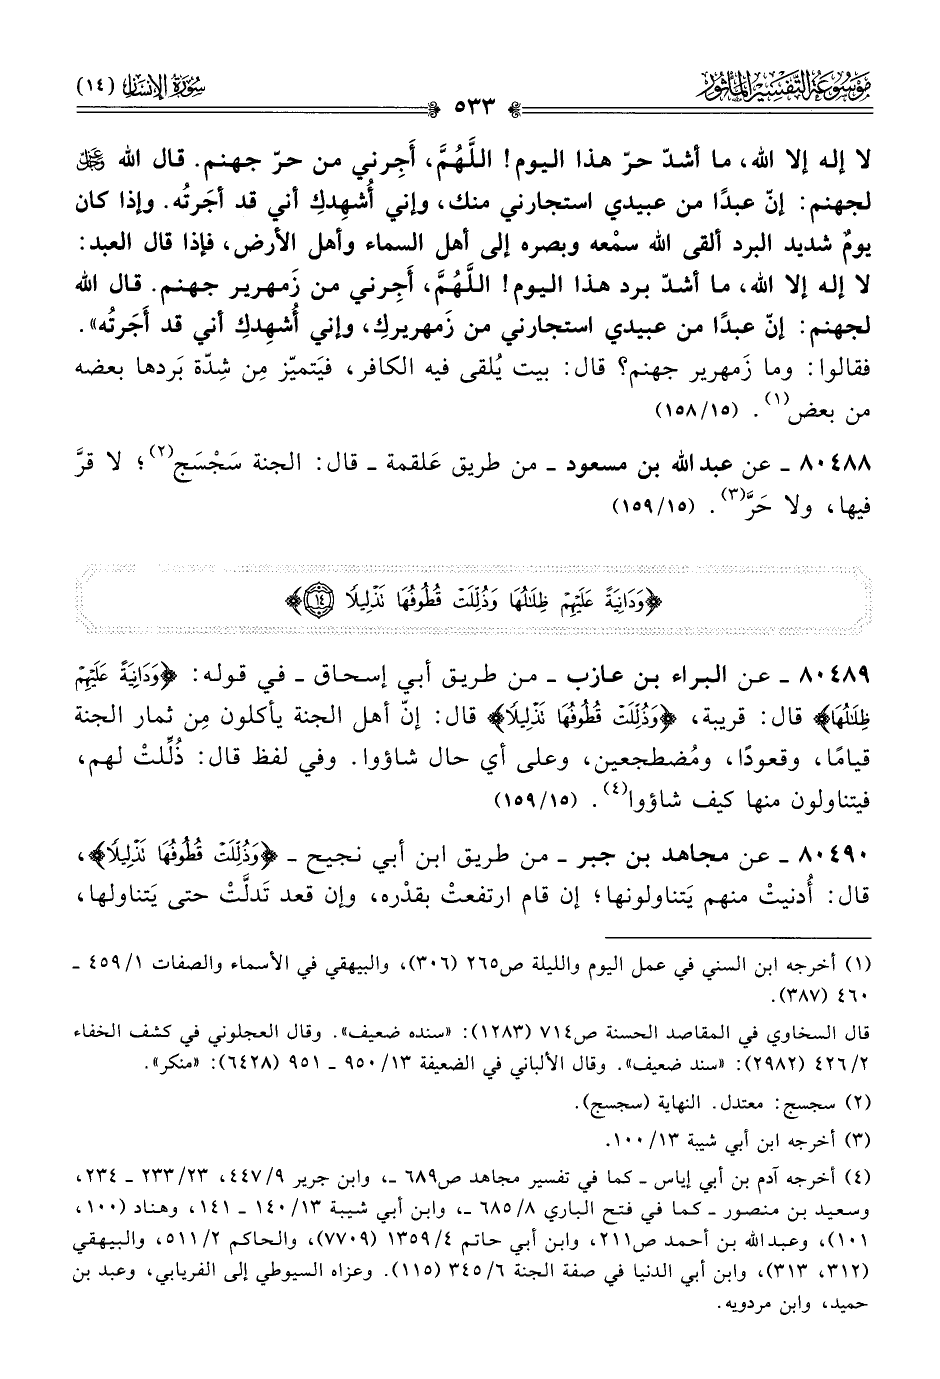 مَوْسُوعَة التَّفْسِير المَأثُور
سُورَة الإنسَان (١٤)
٥٣٣
لا إله إلا الله، ما أشدّ حرّ هذا اليوم! اللَّهُمَّ، أَجِرني من حرّ جهنم. قال الله ﷿
لجهنم: إنّ عبدًا من عبيدي استجارني منك، وإني أُشهِدكِ أني قد أجَرتُه. وإذا كان
يومٌ شديد البرد ألقى الله سمْعه وبصره إلى أهل السماء وأهل الأرض، فإذا قال العبد:
لا إله إلا الله، ما أشدّ برد هذا اليوم! اللَّهُمَّ، أَجِرني من زَمهرير جهنم. قال الله
لجهنم: إنّ عبدًا من عبيدي استجارني من زَمهريركِ، وإني أُشهدكِ أني قد أَجَرتُه».
فقالوا: وما زَمهرير جهنم؟ قال: بيت يُلقى فيه الكافر، فيَتميّز مِن شِدّة بَردها بعضه
من بعض(١). (١٥٨/١٥)
٨٠٤٨٨ ـ عن عبد الله بن مسعود ـ من طريق عَلقمة ـ قال: الجنة سَجْسَج(٢)؛ لا قرَّ
فيها، ولا حَرَّ(٣). (١٥٩/١٥)
﴿وَدَانِيَةً عَلَيْهِمْ ظِلَـٰلُهَا وَذُلِّلَتْ قُطُوفُهَا تَذْلِيلًا ١٤﴾
٨٠٤٨٩ ـ عن البراء بن عازب ـ من طريق أبي إسحاق ـ في قوله: ﴿وَدَانِيَةً عَلَيْهِمْ
ظِلَـٰلُهَا﴾ قال: قريبة، ﴿وَذُلِّلَتْ قُطُوفُهَا تَذْلِيلًا﴾ قال: إنّ أهل الجنة يأكلون مِن ثمار الجنة
قيامًا، وقعودًا، ومُضطجعين، وعلى أي حال شاؤوا. وفي لفظ قال: ذُلِّلتْ لهم،
فيتناولون منها كيف شاؤوا(٤). (١٥٩/١٥)
٨٠٤٩٠ ـ عن مجاهد بن جبر ـ من طريق ابن أبي نجيح ـ ﴿وَذُلِّلَتْ قُطُوفُهَا تَذْلِيلًا﴾،
قال: أُدنيتْ منهم يَتناولونها؛ إن قام ارتفعتْ بقدْره، وإن قعد تَدلَّتْ حتى يَتناولها،
(١) أخرجه ابن السني في عمل اليوم والليلة ص٢٦٥ (٣٠٦)، والبيهقي في الأسماء والصفات ٤٥٩/١ ـ
٤٦٠ (٣٨٧).
قال السخاوي في المقاصد الحسنة ص٧١٤ (١٢٨٣): «سنده ضعيف». وقال العجلوني في كشف الخفاء
٤٢٦/٢ (٢٩٨٢): «سند ضعيف». وقال الألباني في الضعيفة ٩٥٠/١٣ ـ ٩٥١ (٦٤٢٨): «منكر».
(٢) سجسج: معتدل. النهاية (سجسج).
(٣) أخرجه ابن أبي شيبة ١٠٠/١٣.
(٤) أخرجه آدم بن أبي إياس ـ كما في تفسير مجاهد ص٦٨٩ ـ، وابن جرير ٤٤٧/٩، ٢٣٣/٢٣ ـ ٢٣٤،
وسعيد بن منصور ـ كما في فتح الباري ٦٨٥/٨ ـ، وابن أبي شيبة ١٤٠/١٣ ـ ١٤١، وهناد (١٠٠،
١٠١)، وعبدالله بن أحمد ص٢١١، وابن أبي حاتم ١٣٥٩/٤ (٧٧٠٩)، والحاكم ٥١١/٢، والبيهقي
(٣١٢، ٣١٣)، وابن أبي الدنيا في صفة الجنة ٣٤٥/٦ (١١٥). وعزاه السيوطي إلى الفريابي، وعبد بن
حميد، وابن مردويه.